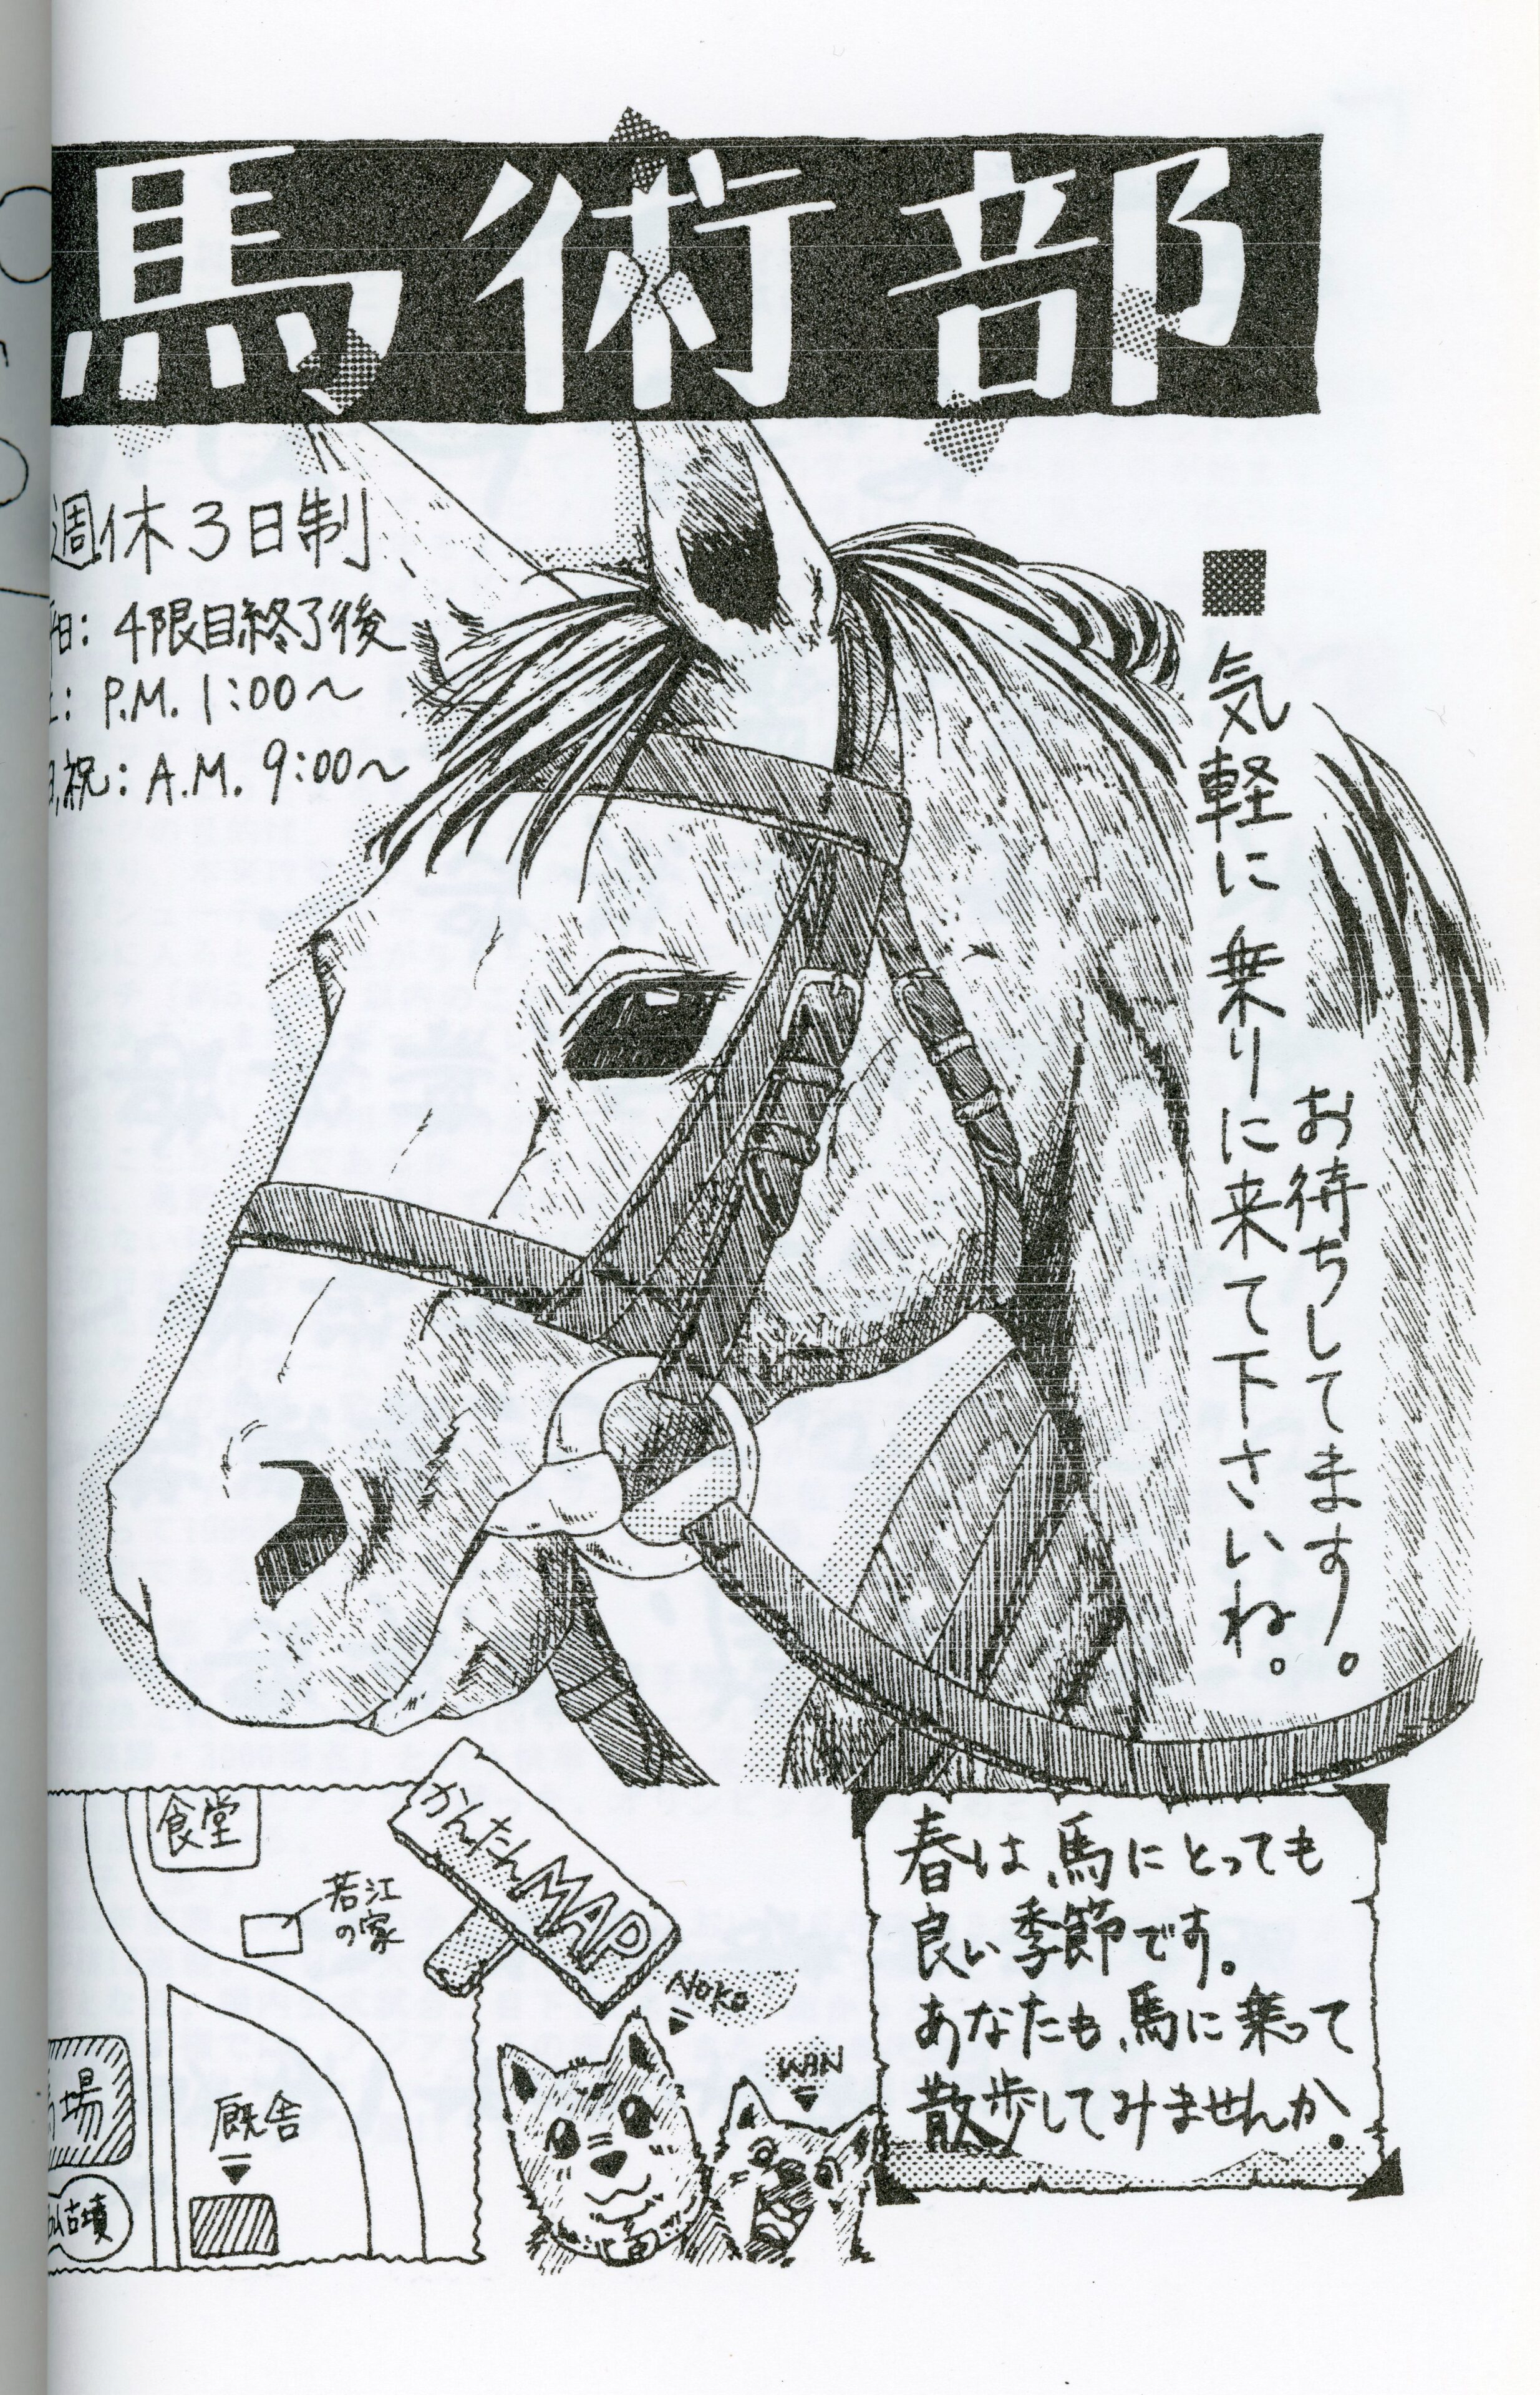 馬術部
週休3日制
平日: 4限目終了後
土: P.M. 1:00〜
日,祝: A.M. 9:00〜
気軽に乗りに来て下さいね。
お待ちしてます。
かんたんMAP
食堂
若江
の家
馬場
厩舎
古墳
Noko
WAN
春は、馬にとっても
良い季節です。
あなたも、馬に乗って
散歩してみませんか。